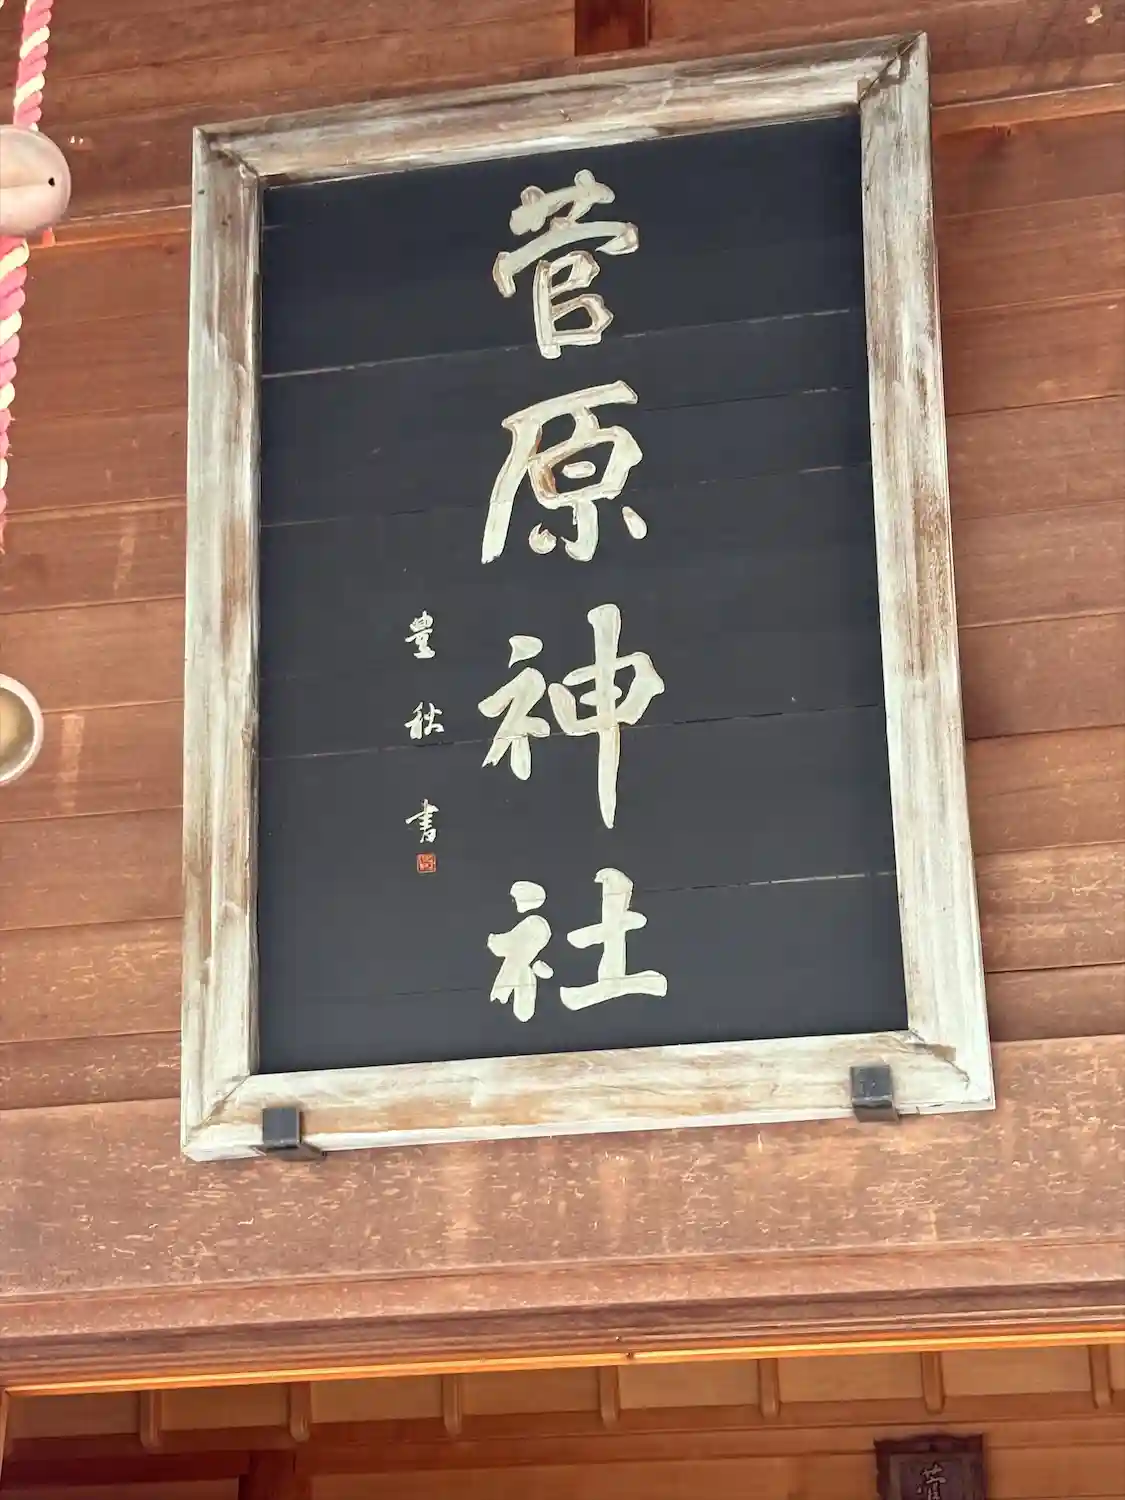 菅原神社
豊秋書
菅